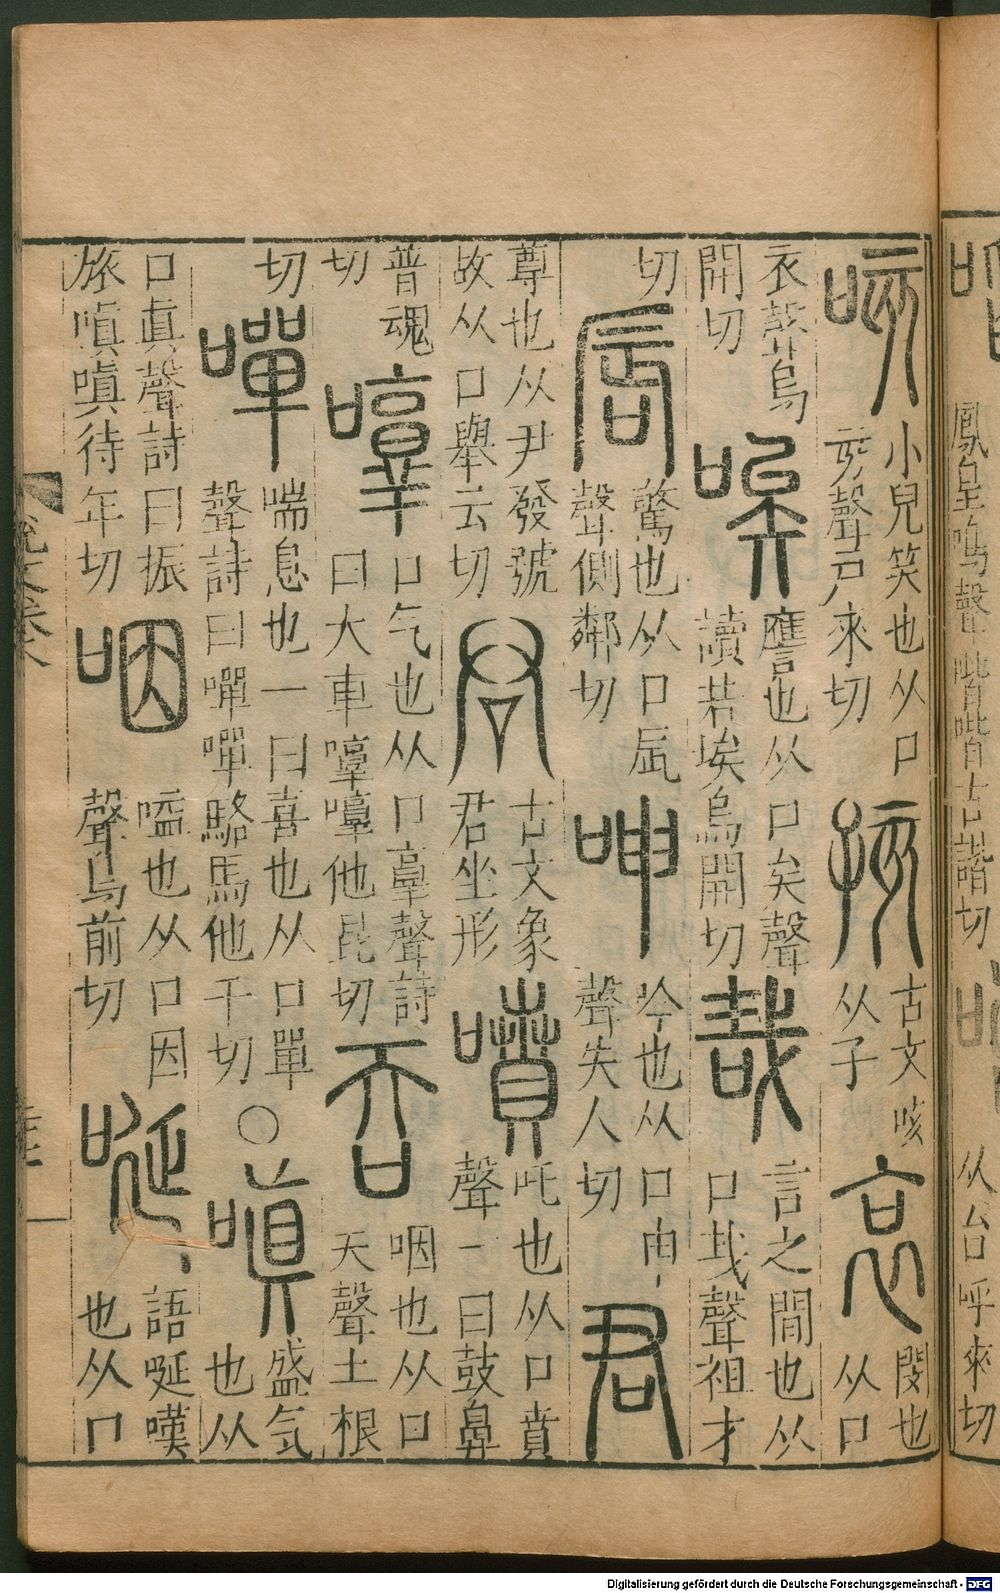 鳳皇鳴聲喈喈古諧切
从台呼來切
咳小兒笑也从口亥聲戶來切孩古文咳从子哀閔也从口
衣聲烏開切唉譍也从口矣聲讀若埃烏開切哉言之閒也从口𢦏聲祖才
切唇驚也从口辰聲側鄰切呻吟也从口申聲失人切君
尊也从尹發號故从口舉云切古文象君坐形噴吒也从口賁聲一曰鼓鼻
普魂切嚉口气也从口𦎫聲詩曰大車嚉嚉他昆切吞咽也从口天聲土根
切嘽喘息也一曰喜也从口單聲詩曰嘽嘽駱馬他干切○嗔盛气也从
口眞聲詩曰振旅嗔嗔待年切咽嗌也从口因聲烏前切唌語唌嘆也从口
說文卷
Digitalisierung gefördert durch die Deutsche Forschungsgemeinschaft - DFG